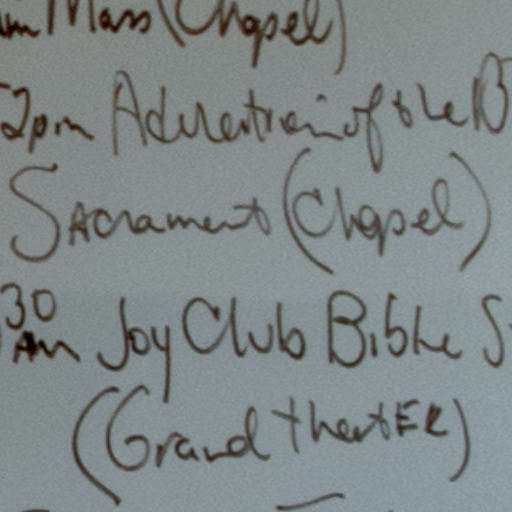 Mass (Chapel)
2pm Adveration of the B
Sacrament (Chapel)
30
Am Joy Club Bible S
(Grand theatER)